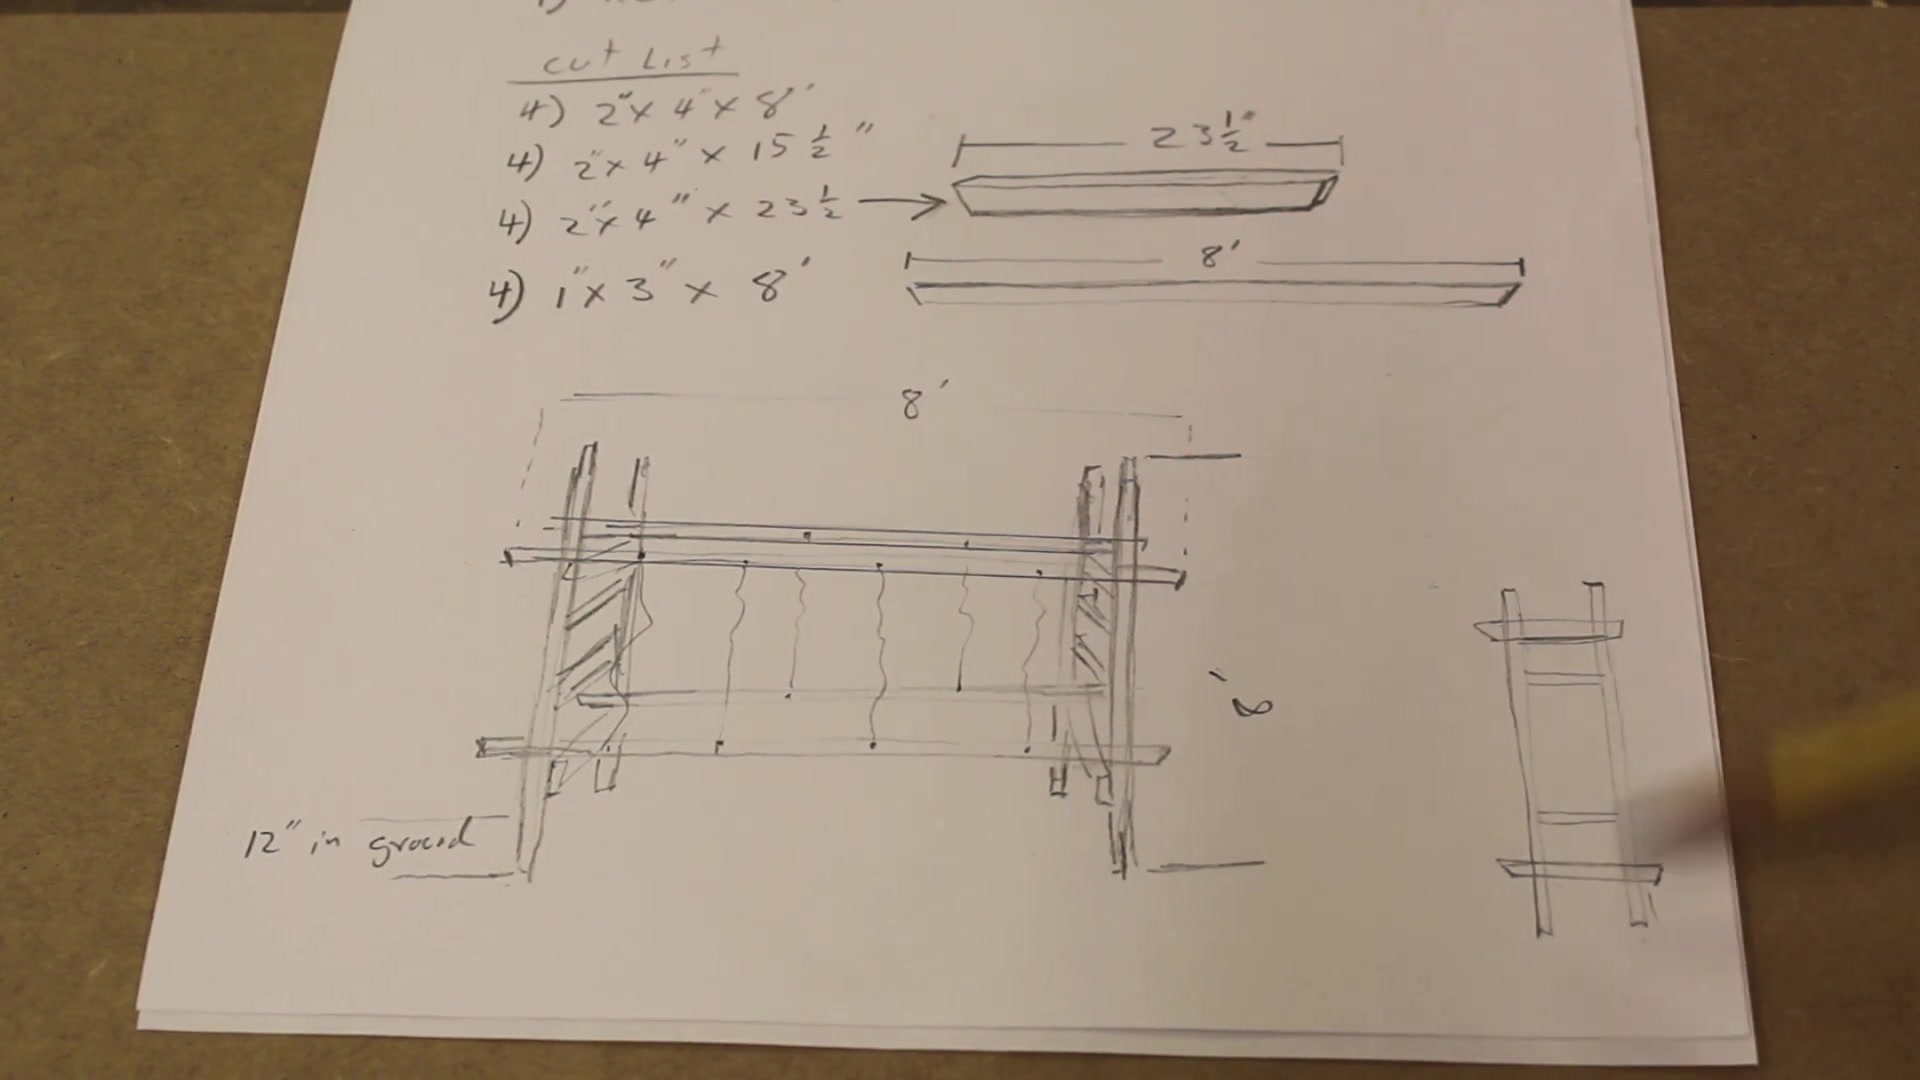 cut List
4) 2"x 4" x 8'
4) 2"x 4" x 15 1/2"
23 1/2"
4) 2"x 4" x 23 1/2
8'
4) 1"x 3" x 8'
8'
8'
12" in ground